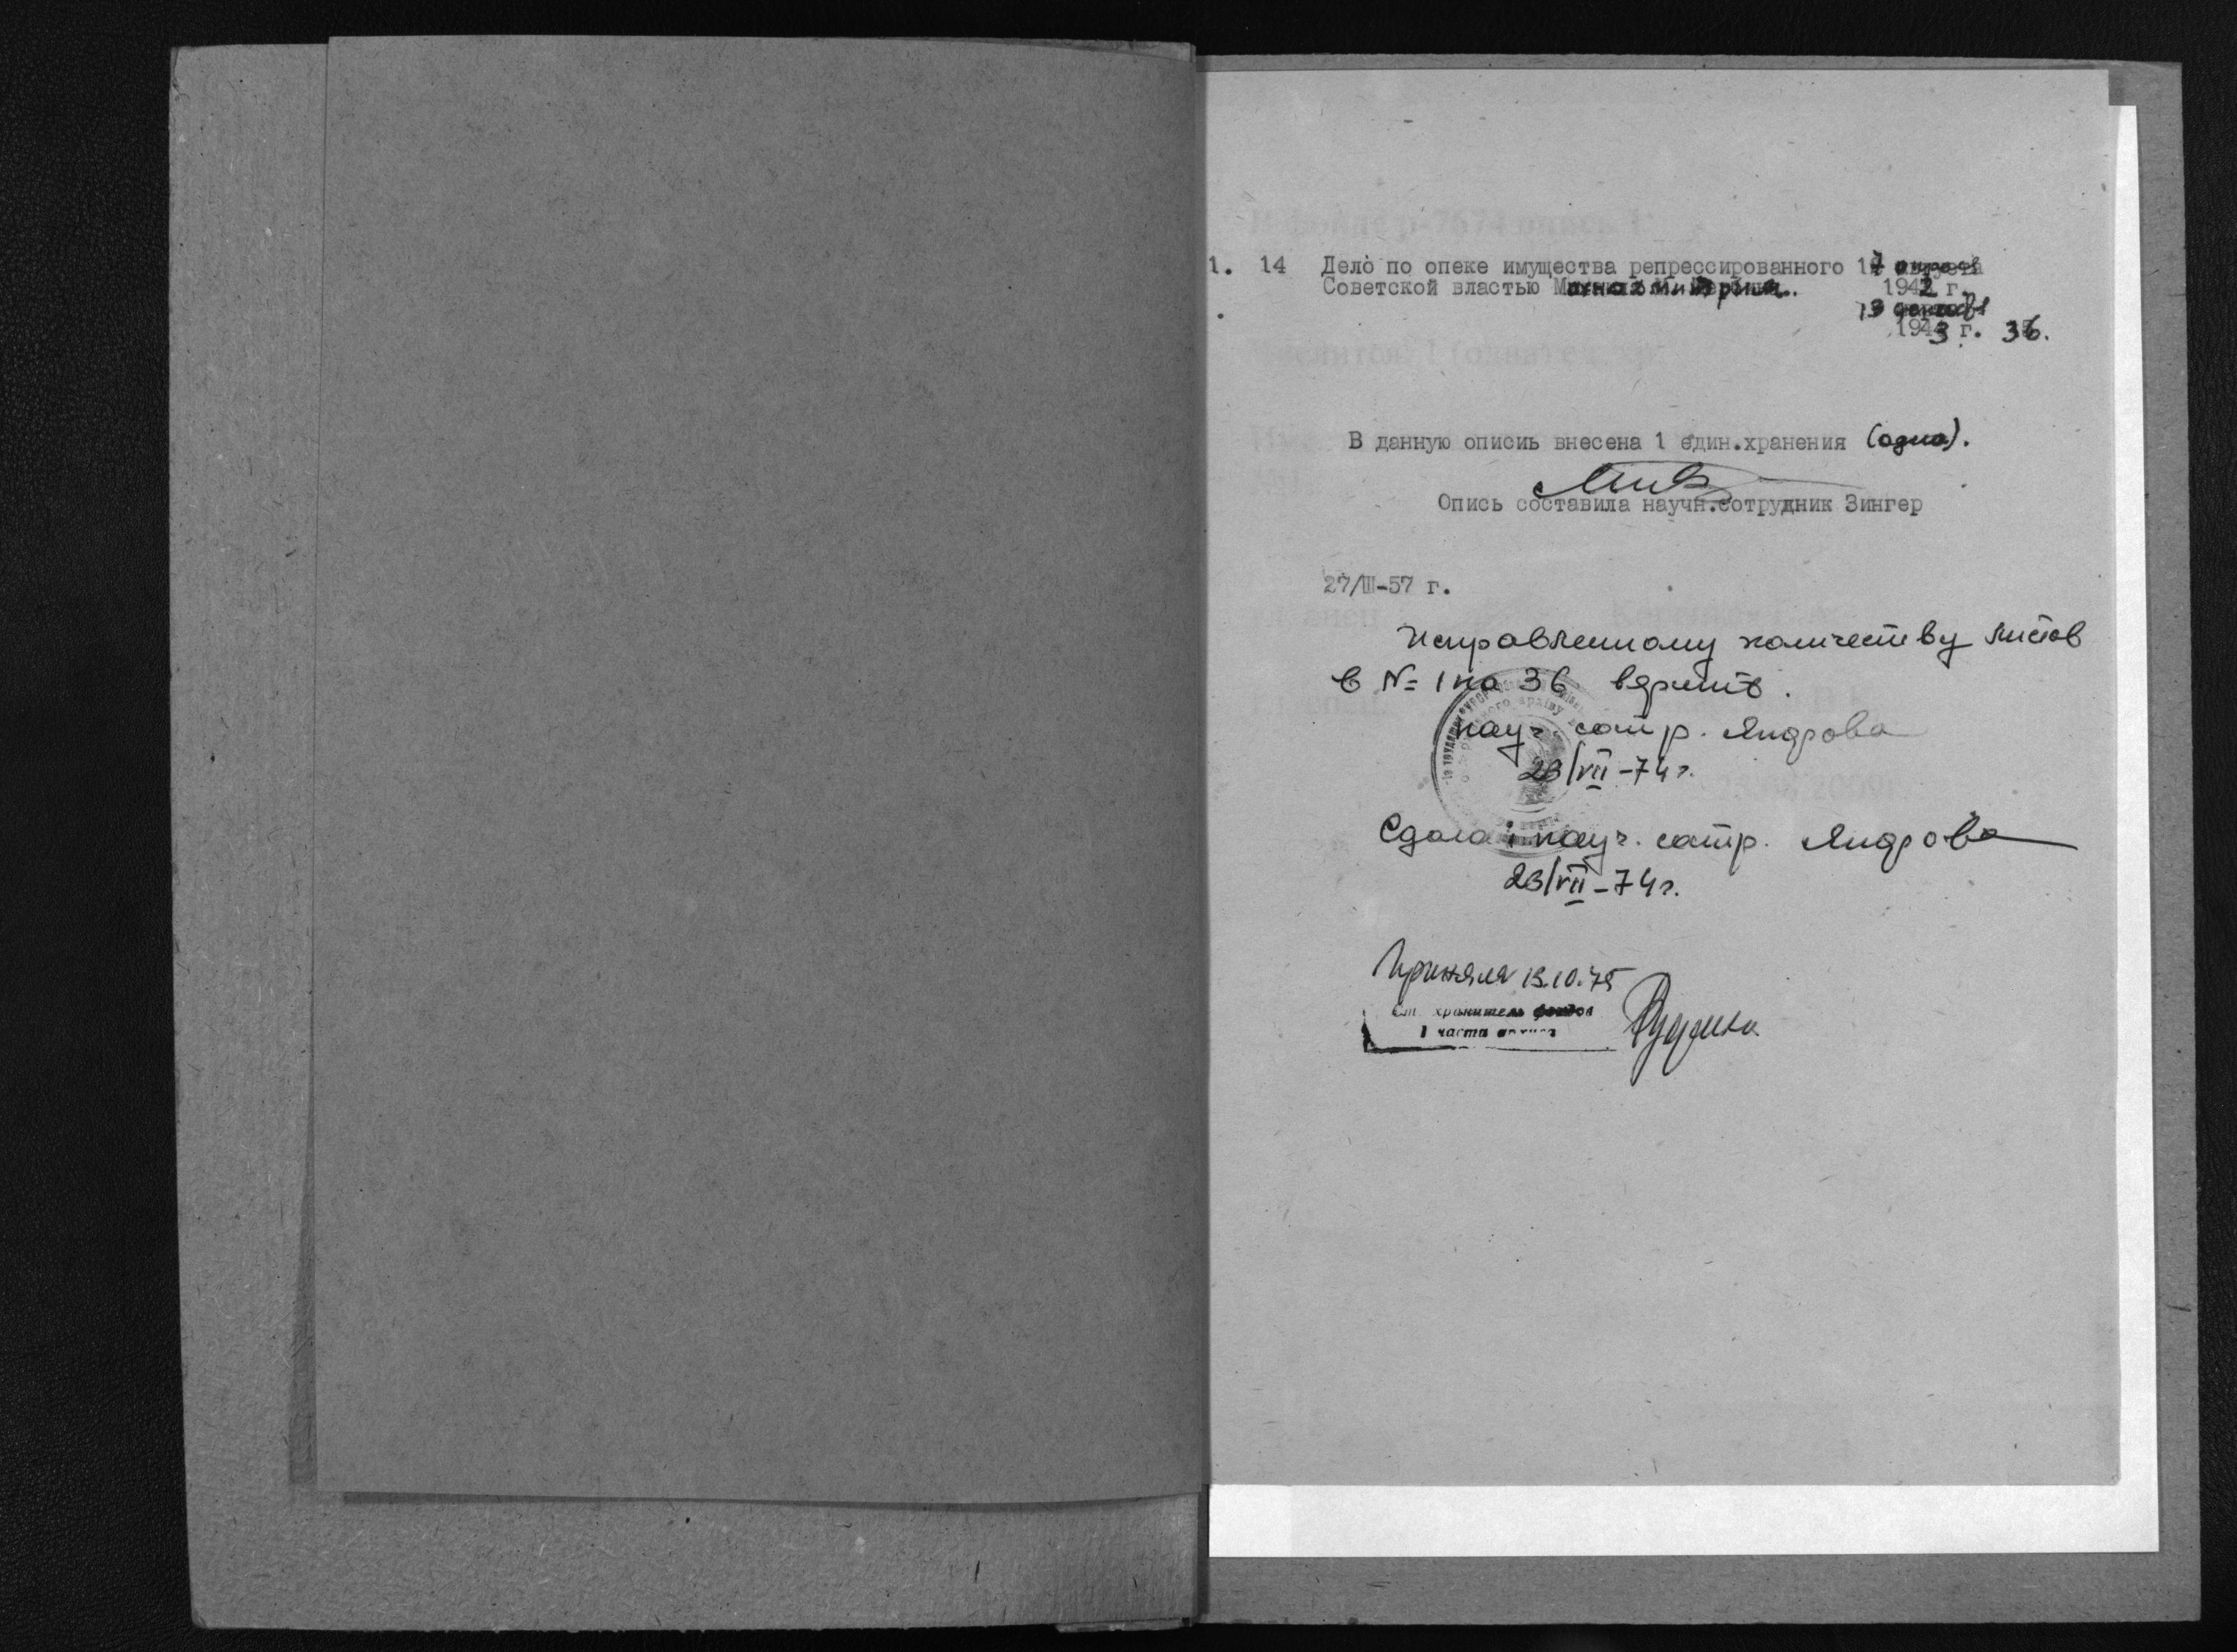 1. 14 Дело по опеке имущества репрессированного 17
Советской властью
1942 г.
1943 г. 36.
В данную опииь внесена 1 един.хранения (одна).
Опись составила научн.сотрудник Зингер
27/Ш-57 г.
Исправленному количеству листов
в № 1 на 36 верить.
науч. сотр. Яндрова
23/VII-74г.
Сдала: науч. сотр. Яндрова
23/VII-74г.
Приняла 13.10.75
Ст. хранитель фондов
1 части архива